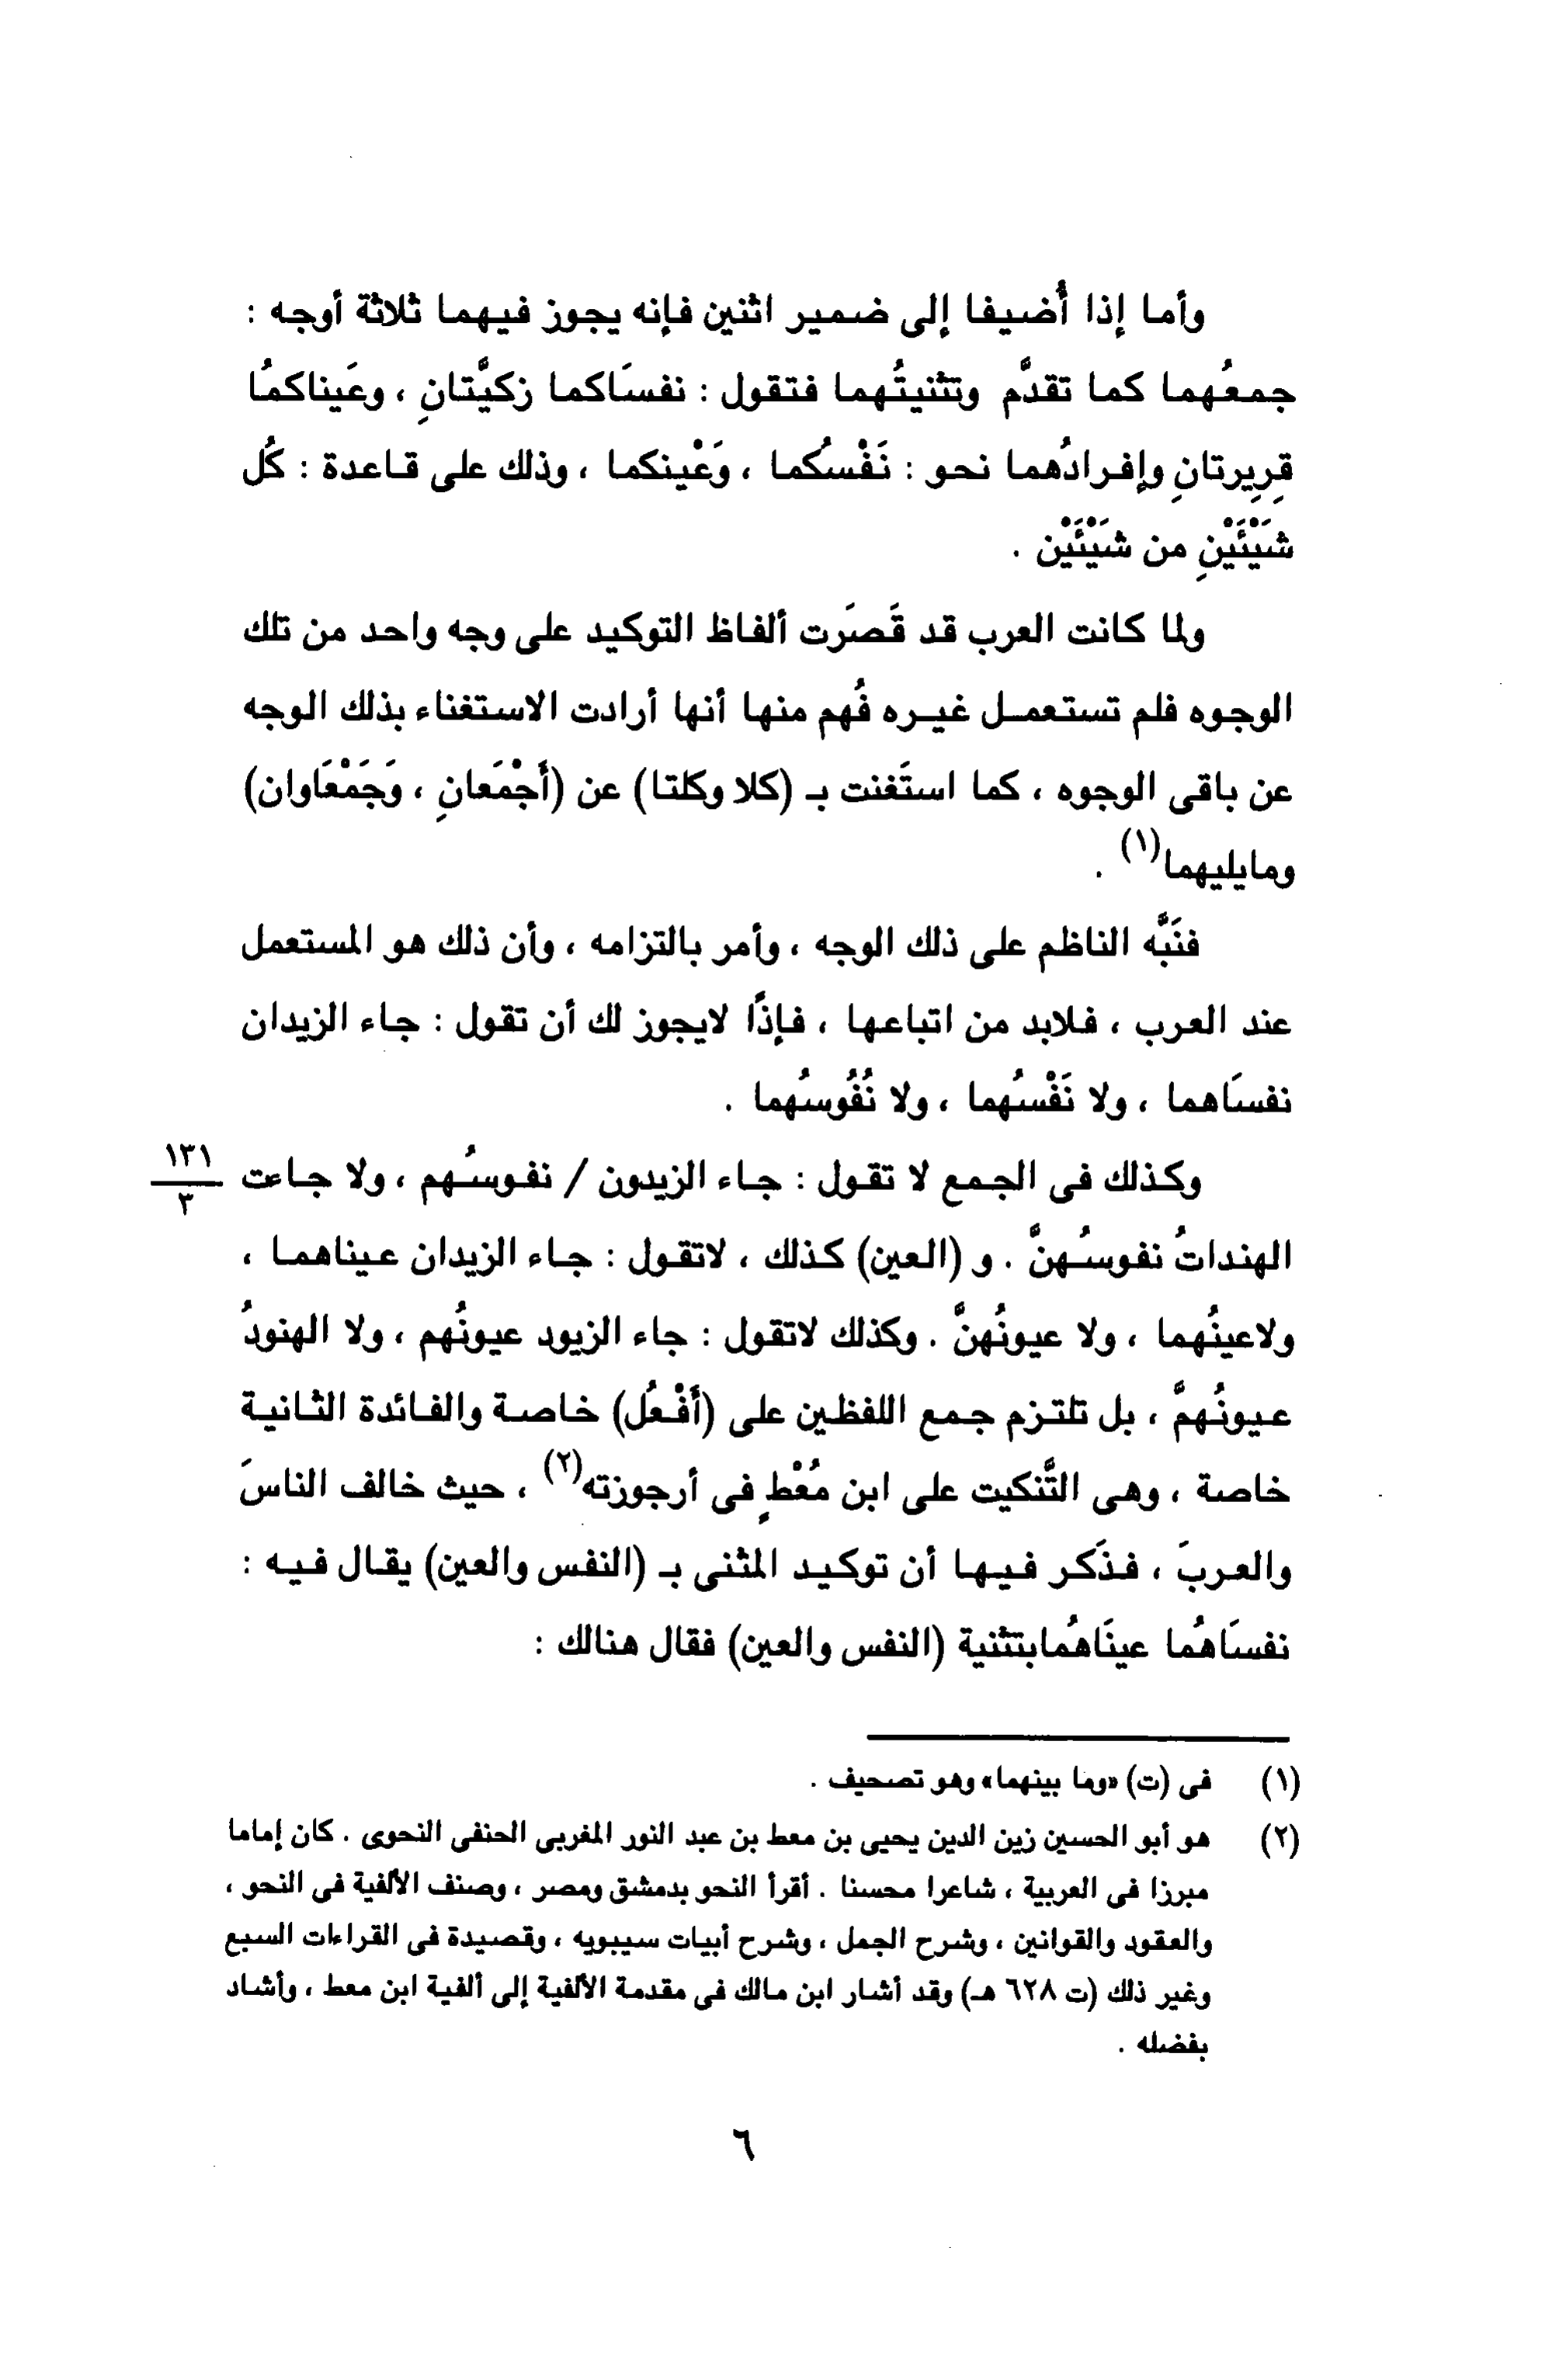 وأما إذا أُضيفا إلى ضمير اثنين فإنه يجوز فيهما ثلاثة أوجه :
جمعُهما كما تقدَّم وتثنيتُهما فتقول : نفسَاكما زكيَّتانِ ، وعَيناكمُا
قرِيرِتانِ وإفرادُهما نحو : نَفْسكُما ، وَعْينكما ، وذلك على قاعدة : كُل
شَيْئَيْنِ من شَيْئَيْن .
ولما كانت العرب قد قَصَرت ألفاظ التوكيد على وجه واحد من تلك
الوجوه فلم تستعمل غيره فُهم منها أنها أرادت الاستغناء بذلك الوجه
عن باقى الوجوه ، كما استَغنت بـ (كلا وكلتا) عن (أَجْمَعانِ ، وَجَمْعَاوان)
ومايليهما(١) .
فنَبَّه الناظم على ذلك الوجه ، وأمر بالتزامه ، وأن ذلك هو المستعمل
عند العرب ، فلابد من اتباعها ، فإذًا لايجوز لك أن تقول : جاء الزيدان
نفسَاهما ، ولا نَفْسُهما ، ولا نُفُوسُهما .
وكذلك فى الجمع لا تقول : جاء الزيدون / نفوسُهم ، ولا جاءت
١٣١
٣
الهنداتُ نفوسُهنَّ . و (العين) كذلك ، لاتقول : جاء الزيدان عيناهما ،
ولاعينُهما ، ولا عيونُهنَّ . وكذلك لاتقول : جاء الزيود عيونُهم ، ولا الهنودُ
عيونُهمَّ ، بل تلتزم جمع اللفظين على (أفْعُل) خاصة والفائدة الثانية
خاصة ، وهى التَّنكيت على ابن مُعْطٍ فى أرجوزته(٢) ، حيث خالف الناسَ
والعربَ ، فذَكر فيها أن توكيد المثنى بـ (النفس والعين) يقال فيه :
نفسَاهُما عينَاهُمابتثنية (النفس والعين) فقال هنالك :
(١) فى (ت) «وما بينهما» وهو تصحيف .
(٢) هو أبو الحسين زين الدين يحيى بن معط بن عبد النور المغربى الحنفى النحوى . كان إماما
مبرزا فى العربية ، شاعرا محسنا . أقرأ النحو بدمشق ومصر ، وصنف الألفية فى النحو ،
والعقود والقوانين ، وشرح الجمل ، وشرح أبيات سيبويه ، وقصيدة فى القراءات السبع
وغير ذلك (ت ٦٢٨ هـ) وقد أشار ابن مالك فى مقدمة الألفية إلى ألفية ابن معط ، وأشاد
بفضله .
٦